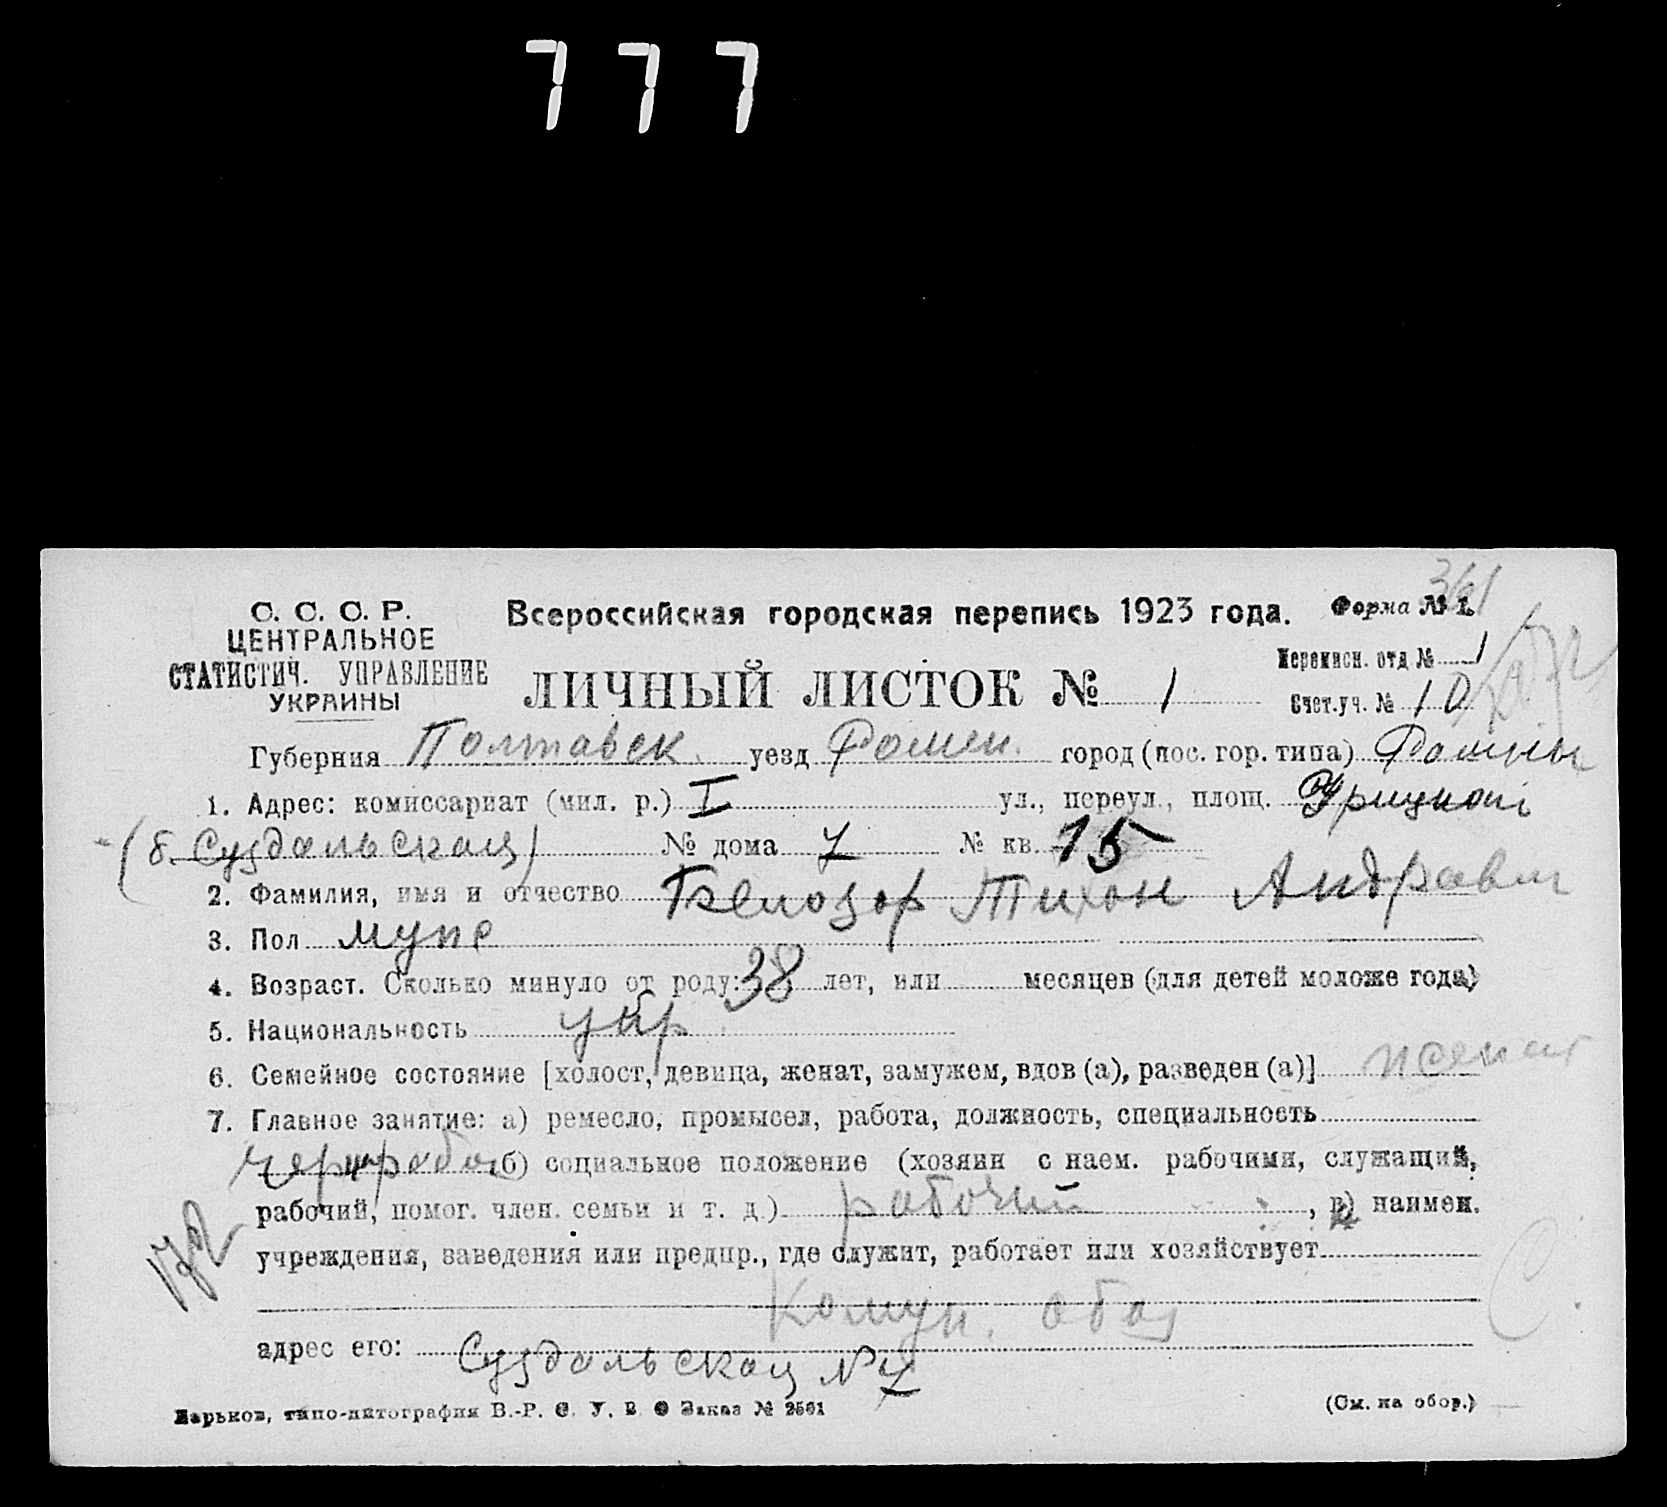 777
361
С. С. С. Р.
ЦЕНТРАЛЬНОЕ
СТАТИСТИЧ. УПРАВЛЕНИЕ
УКРАИНЫ
Всероссийская городская перепись 1923 года.
Форма № 1.
ЛИЧНЫЙ ЛИСТОК № 1
Переписн. отд № 1
Счет.уч. № 10
Губерния Полтавск. уезд Ромен. город (пос. гор. типа) Ромны
1. Адрес: комиссариат (мил. р.) I ул., переул., площ. Урицкой
(б. Суздальская) № дома 7 № кв. 15
2. Фамилия, имя и отчество Белозор Тихон Андреевич
3. Пол муж
4. Возраст. Сколько минуло от роду: 38 лет, или месяцев (для детей моложе года)
5. Национальность укр
6. Семейное состояние [холост, девица, женат, замужем, вдов (а), разведен (а)] женат
7. Главное занятие: а) ремесло, промысел, работа, должность, специальность
черн рабоч б) социальное положение (хозяин с наем. рабочими, служащий,
рабочий, помог. член. семьи и т. д.) рабочий , в) наимен.
учреждения, заведения или предпр., где служит, работает или хозяйствует
Комун. обоз
адрес его: Суздальская № 7
Харьков, типо-литография В.-Р. С. У. В. О Заказ № 2561
(См. на обор.)